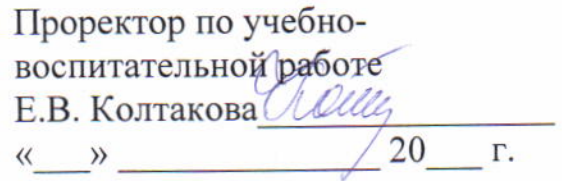 Проректор по учебно-
воспитательной работе
Е.В. Колтакова
«___» ______________ 20___ г.